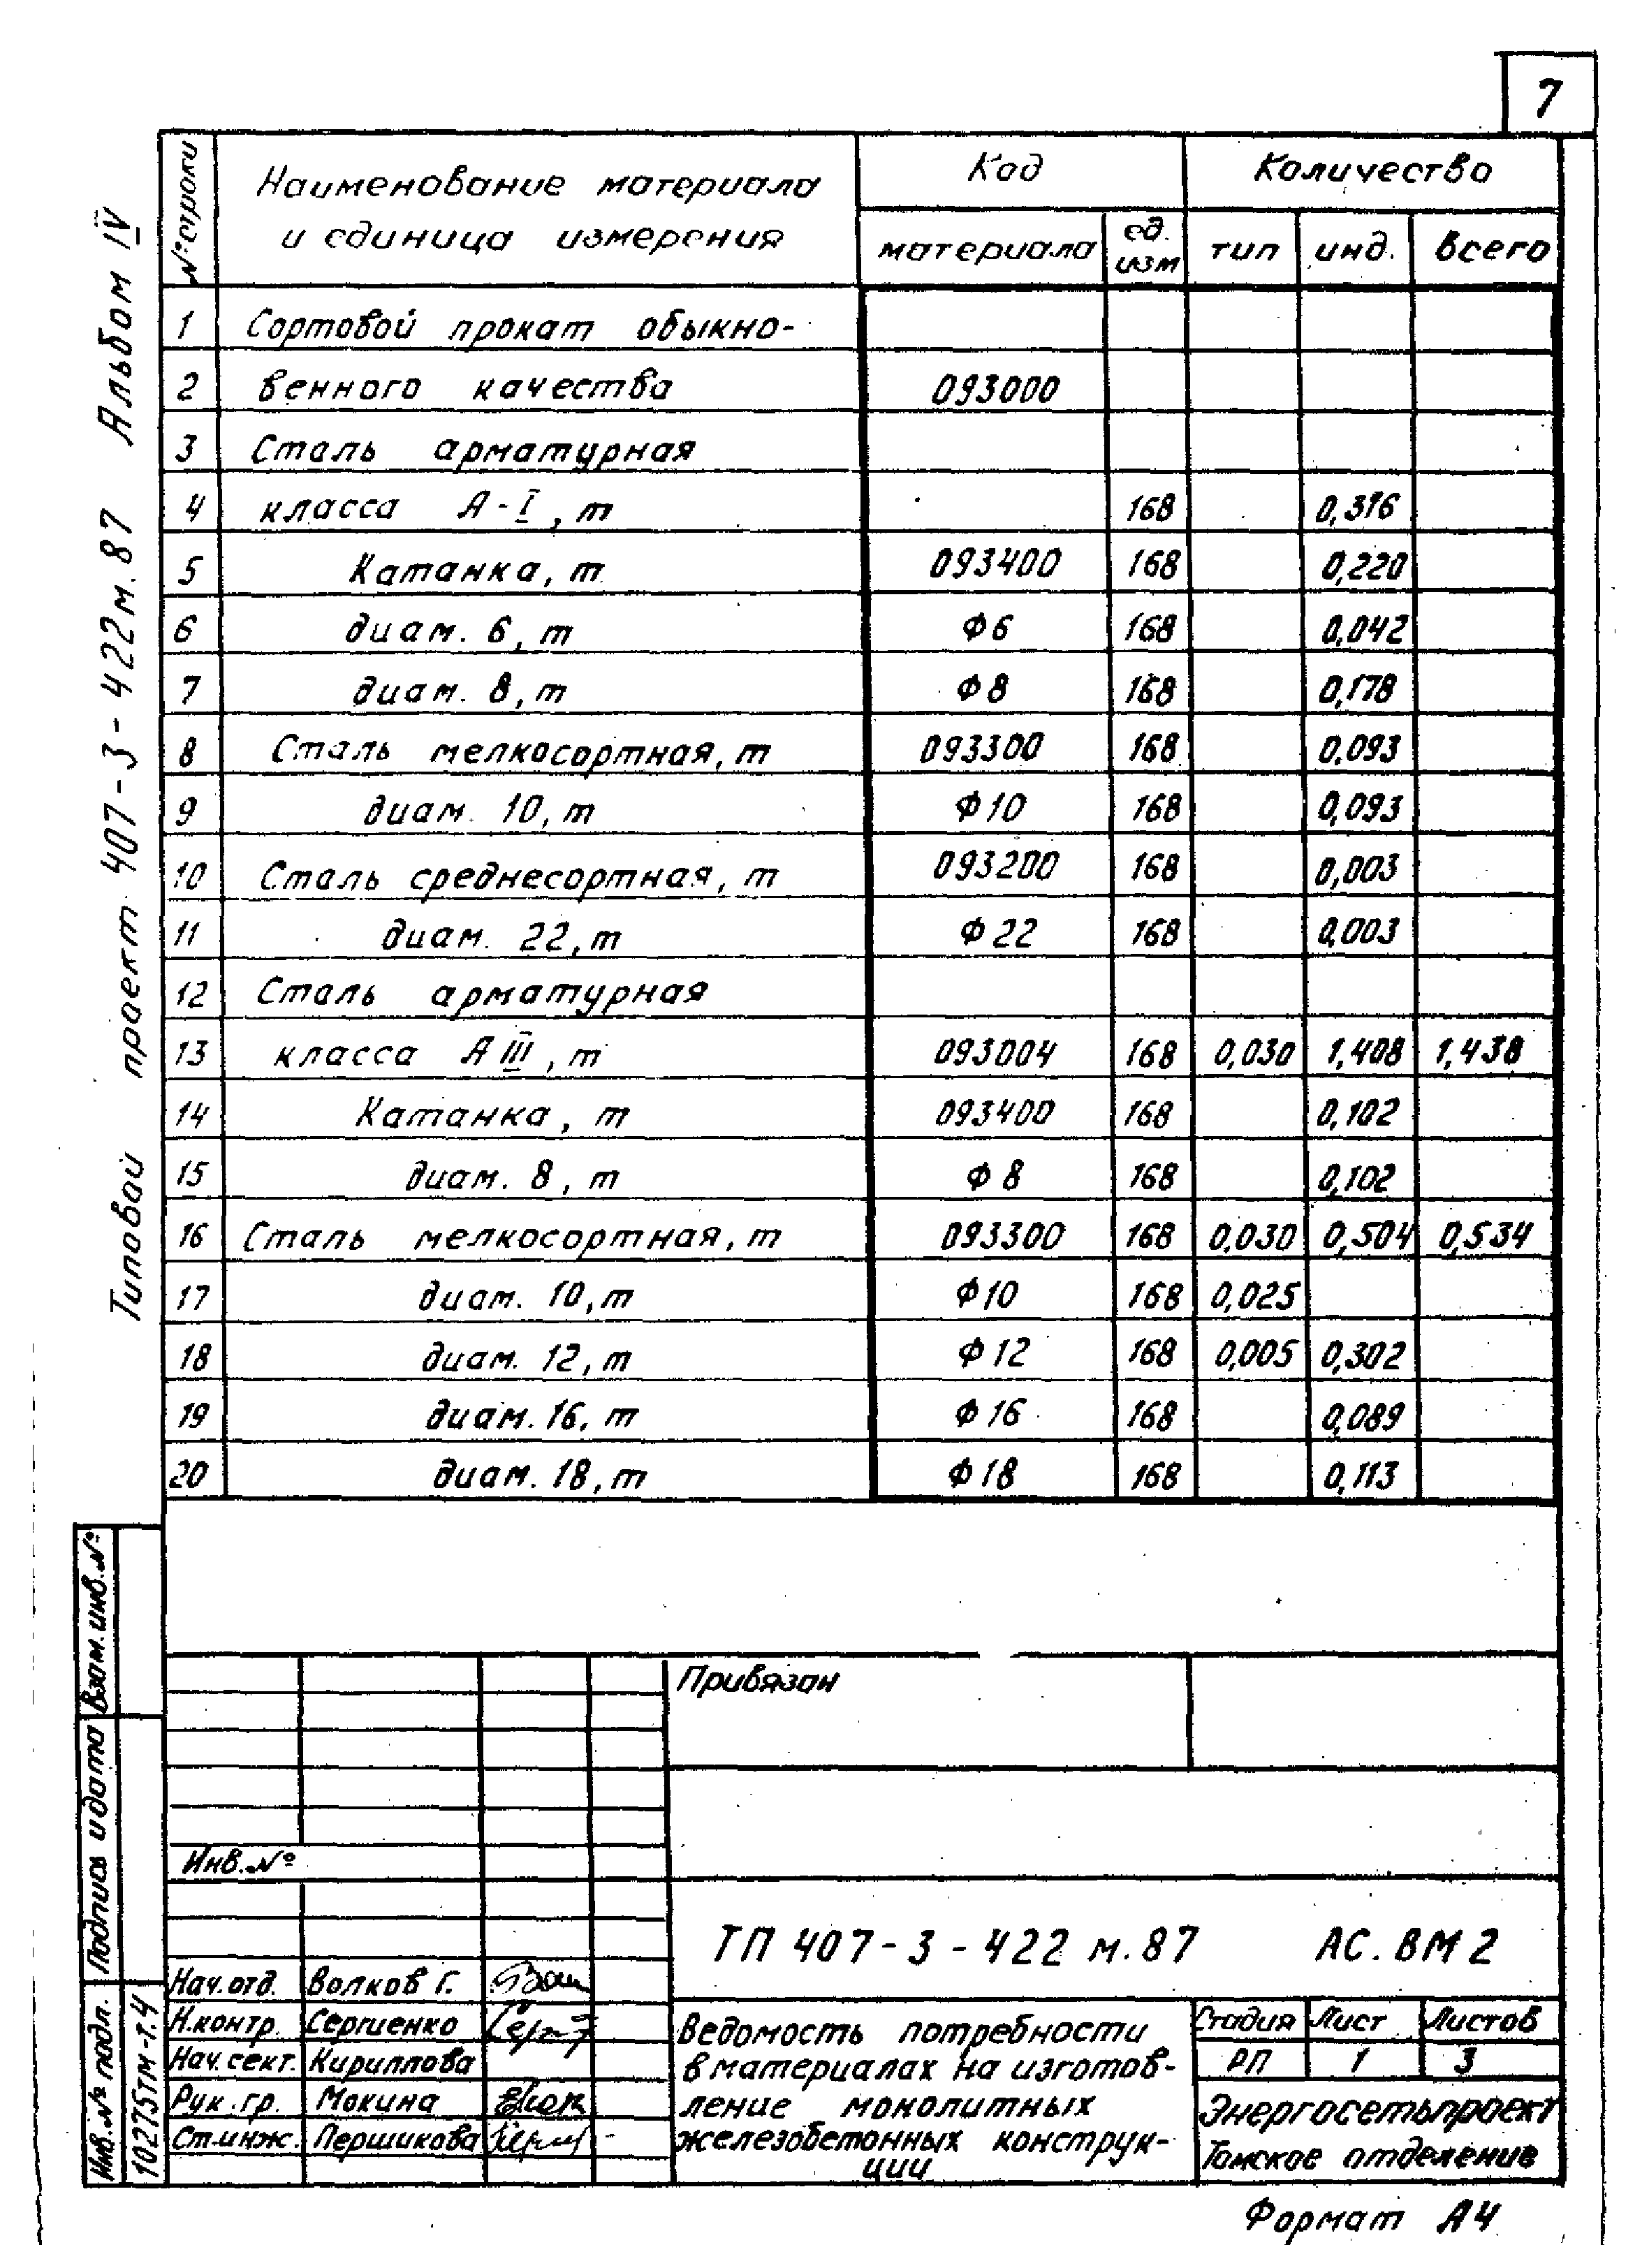 7
Типовой проект 407-3-422м.87 Альбом IV
№ строки
Наименование материала
и единица измерения
Код
Количество
материала
ед.
изм
тип
инд.
Всего
1 Сортовой прокат обыкно-
2 венного качества 093000
3 Сталь арматурная
4 класса А-I, т 168 0,316
5 Катанка, т 093400 168 0,220
6 диам. 6, т Ф6 168 0,042
7 диам. 8, т Ф8 168 0,178
8 Сталь мелкосортная, т 093300 168 0,093
9 диам. 10, т Ф10 168 0,093
10 Сталь среднесортная, т 093200 168 0,003
11 диам. 22, т Ф22 168 0,003
12 Сталь арматурная
13 класса А III, т 093004 168 0,030 1,408 1,438
14 Катанка, т 093400 168 0,102
15 диам. 8, т Ф8 168 0,102
16 Сталь мелкосортная, т 093300 168 0,030 0,504 0,534
17 диам. 10, т Ф10 168 0,025
18 диам. 12, т Ф12 168 0,005 0,302
19 диам. 16, т Ф16 168 0,089
20 диам. 18, т Ф18 168 0,113
Взам. инв. №
Подпись и дата
Инв. № подл.
10275тм-т.4
Привязан
Инв. №
ТП 407-3-422 м.87 АС.ВМ2
Нач.отд. Волков Г.
Н.контр. Сергиенко
Нач.сект. Кириллова
Рук.гр. Мокина
Ст.инж. Першикова
Ведомость потребности
в материалах на изготов-
ление монолитных
железобетонных конструк-
ции
Стадия Лист Листов
РП 1 3
Энергосетьпроект
Томское отделение
Формат А4